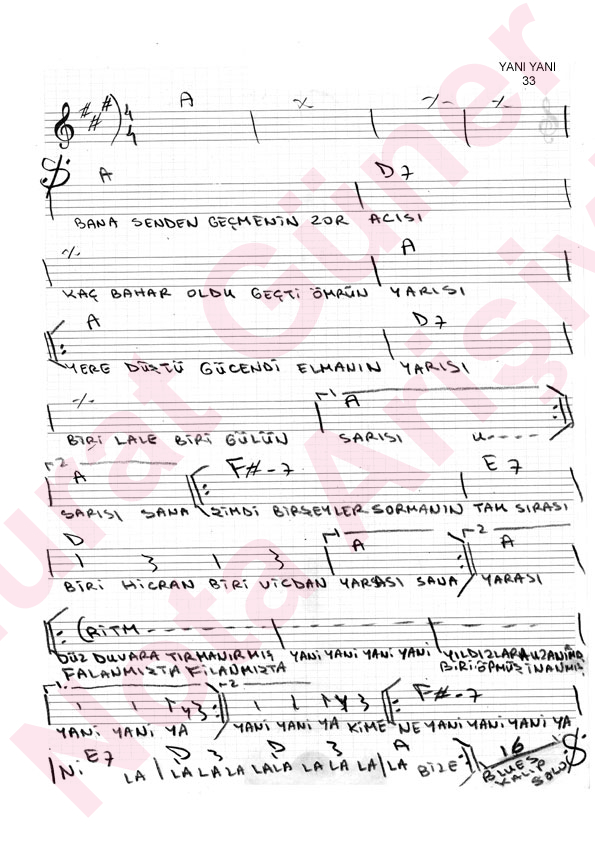 YANI YANI
33
A % % %
4
4
A D7
BANA SENDEN GEÇMENİN ZOR ACISI
% A
KAÇ BAHAR OLDU GEÇTİ ÖMRÜN YARISI
A D7
YERE DÜŞTÜ GÜCENDİ ELMANIN YARISI
% 1 A
BİRİ LALE BİRİ GÜLÜN SARISI u----
2 A F#-7 E7
SARISI SANA ŞİMDİ BİRŞEYLER SORMANIN TAM SIRASI
D 1 A 2 A
BİRİ HİCRAN BİRİ VİCDAN YARASI SANA YARASI
(RİTM
DÜZ DUVARA TIRMANIRMIŞ YANİ YANİ YANİ YANİ YILDIZLARA UZANIRMIŞ
FALANMIŞTA FİLANMIŞTA BİRİ ÖPMÜŞ İNANMIŞ
1. 2 F#-7
YANİ YANİ YA YANİ YANİ YA KİME NE YANİ YANİ YANİ YA
E7 D D A 16
Nİ LA LA LA LA LALA LA LA LA LA BİZE BLUES KALIP SOLO
Murat Güner
Nota Arişivi